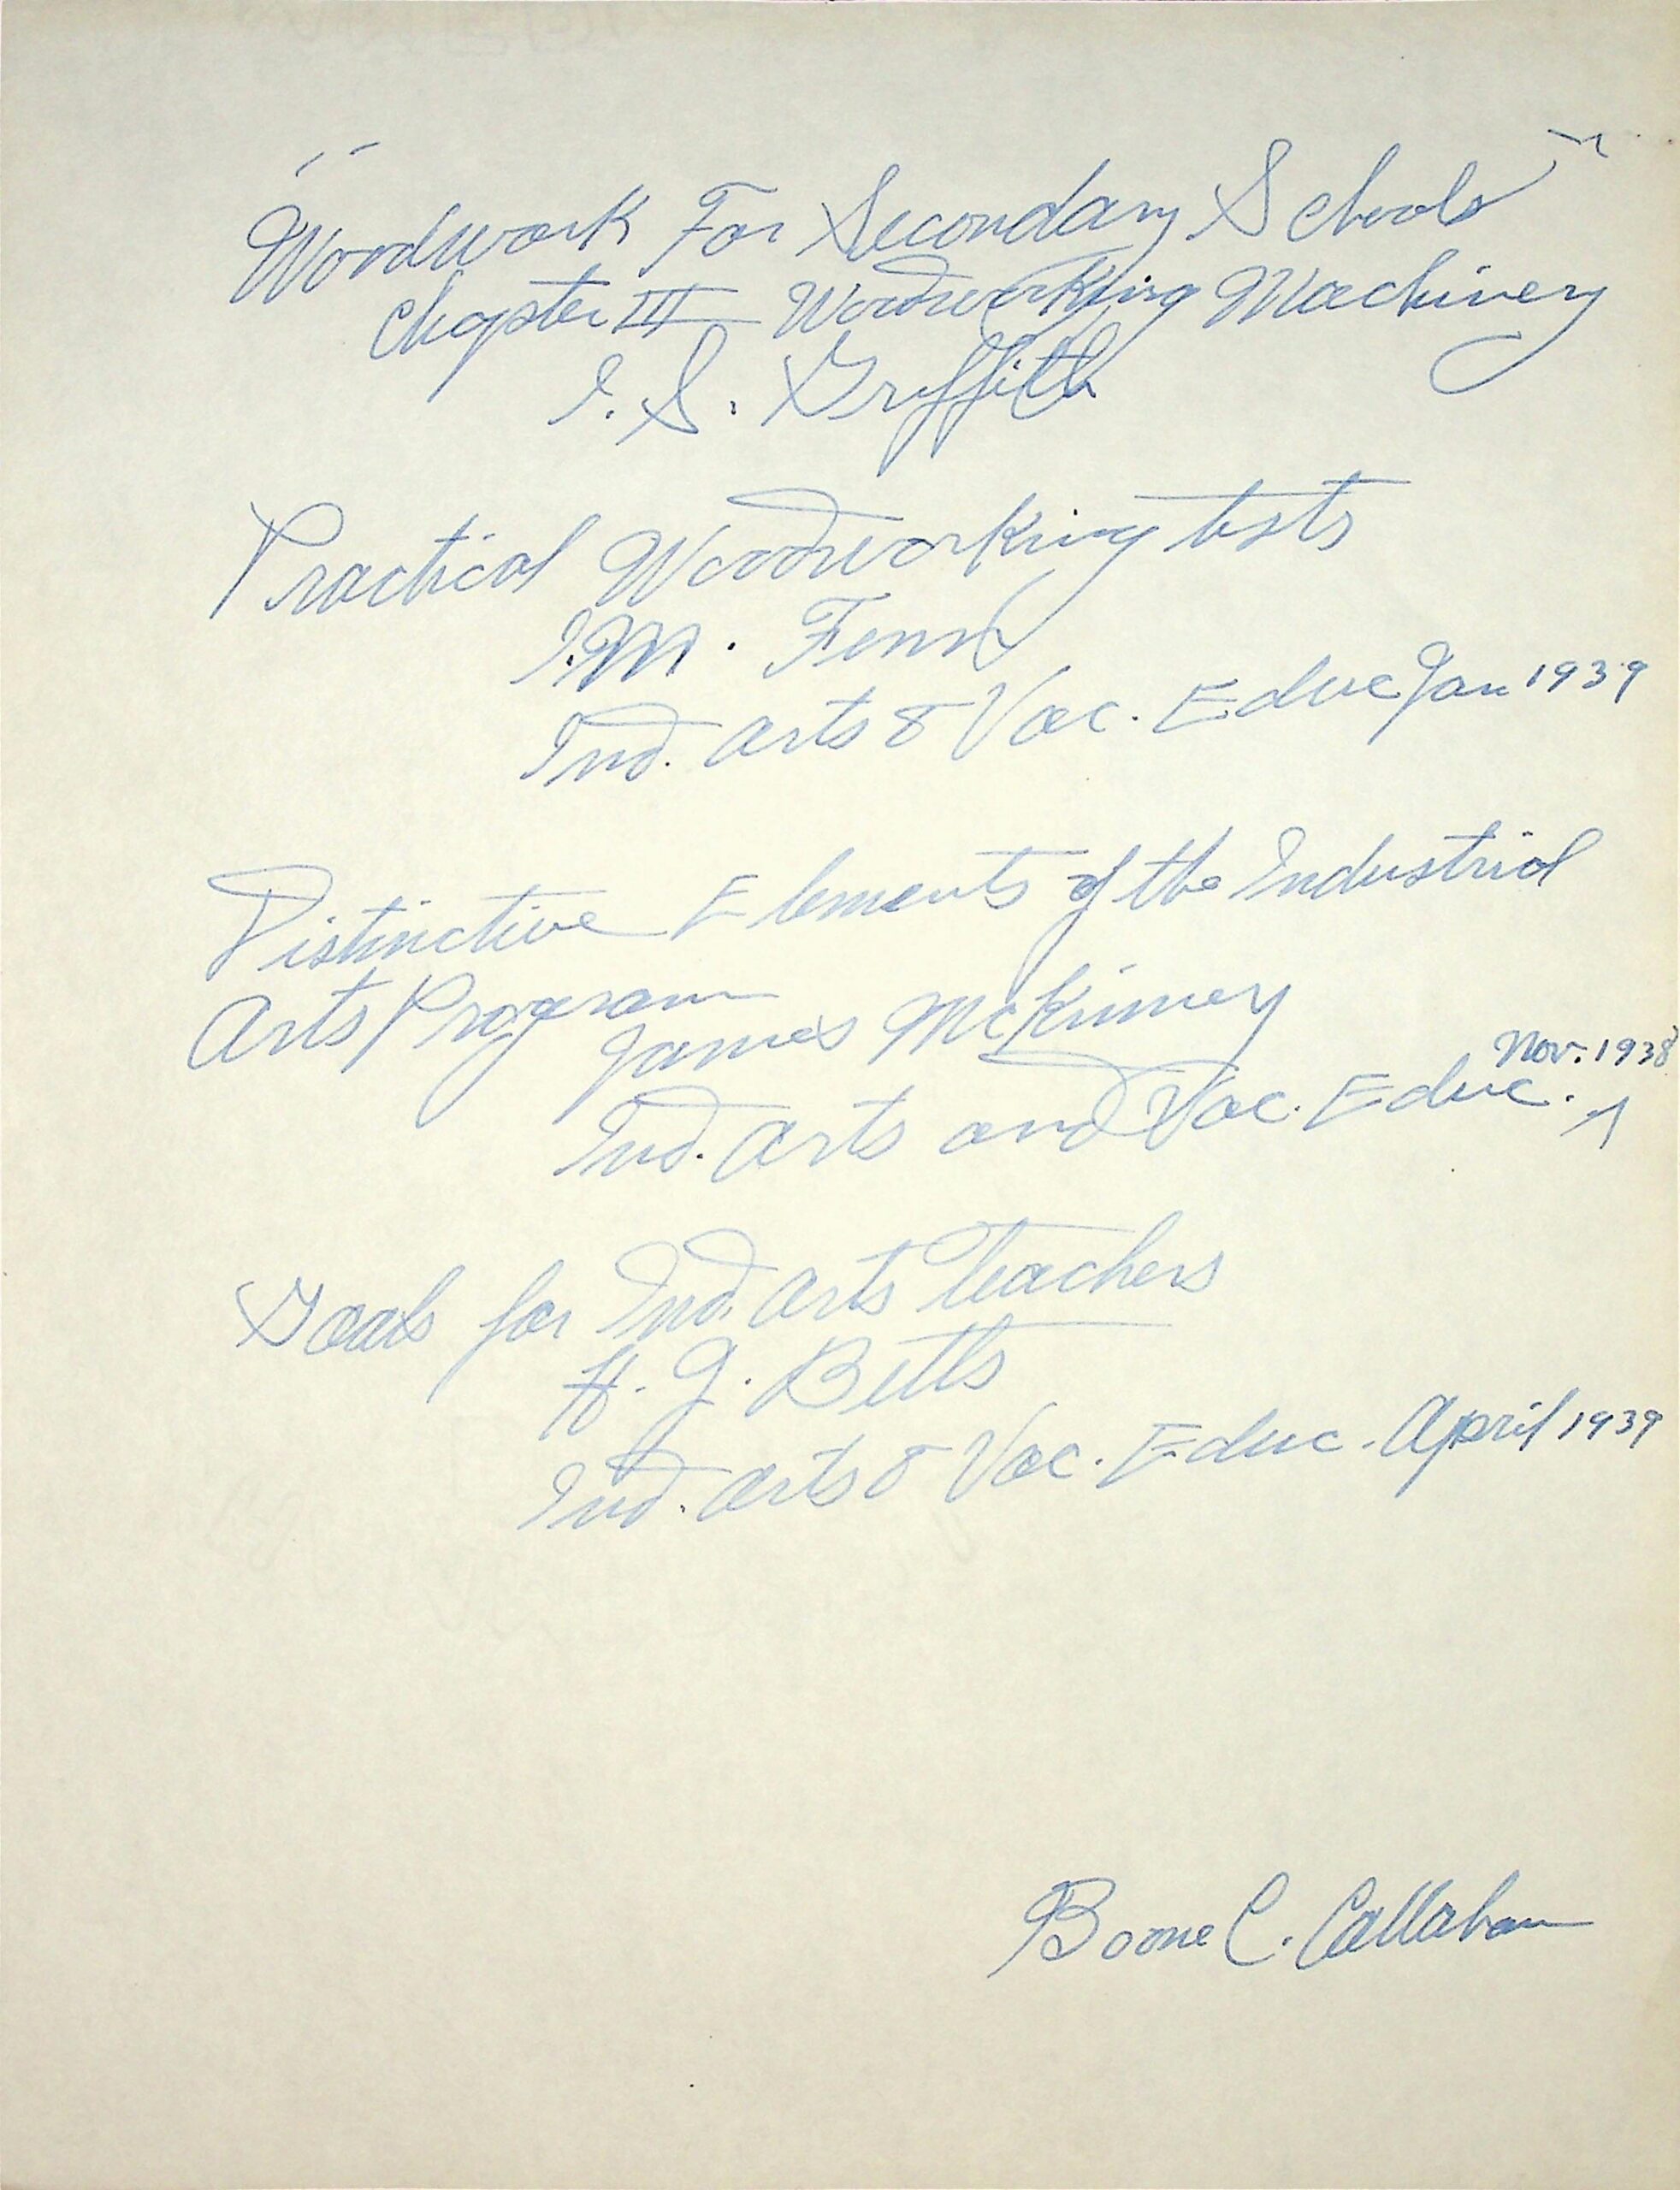 "Woodwork For Secondary Schools"
Chapter III Woodworking Machinery
I. S. Griffith
Practical Woodworking tests
I.M. Fenn
Ind. Arts & Voc. Educ Jan 1939
Distinctive Elements of the Industrial
Arts Program
James McKinney
Nov. 1938
Ind. Arts and Voc. Educ. ^
Goals for Ind. Arts Teachers
H. J. Betts
Ind. Arts & Voc. Educ. April 1939
Boone C. Callahan